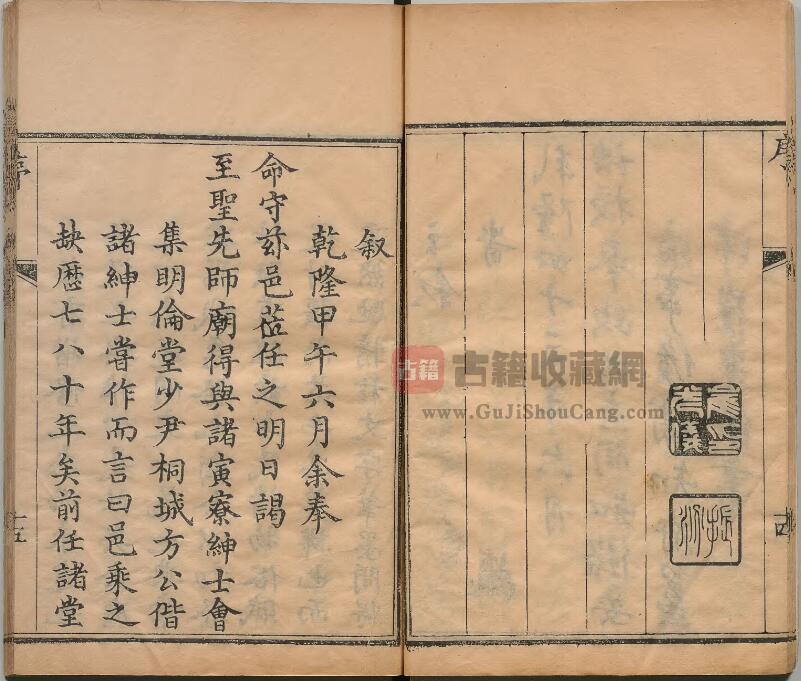 叙
乾隆甲午六月余奉
命守茲邑莅任之明日謁
至聖先師廟得與諸寅寮紳士會
集明倫堂少尹桐城方公偕
諸紳士嘗作而言曰邑乘之
缺歷七八十年矣前任諸堂
序
十五
古籍
古籍收藏網
www.GuJiShouCang.com